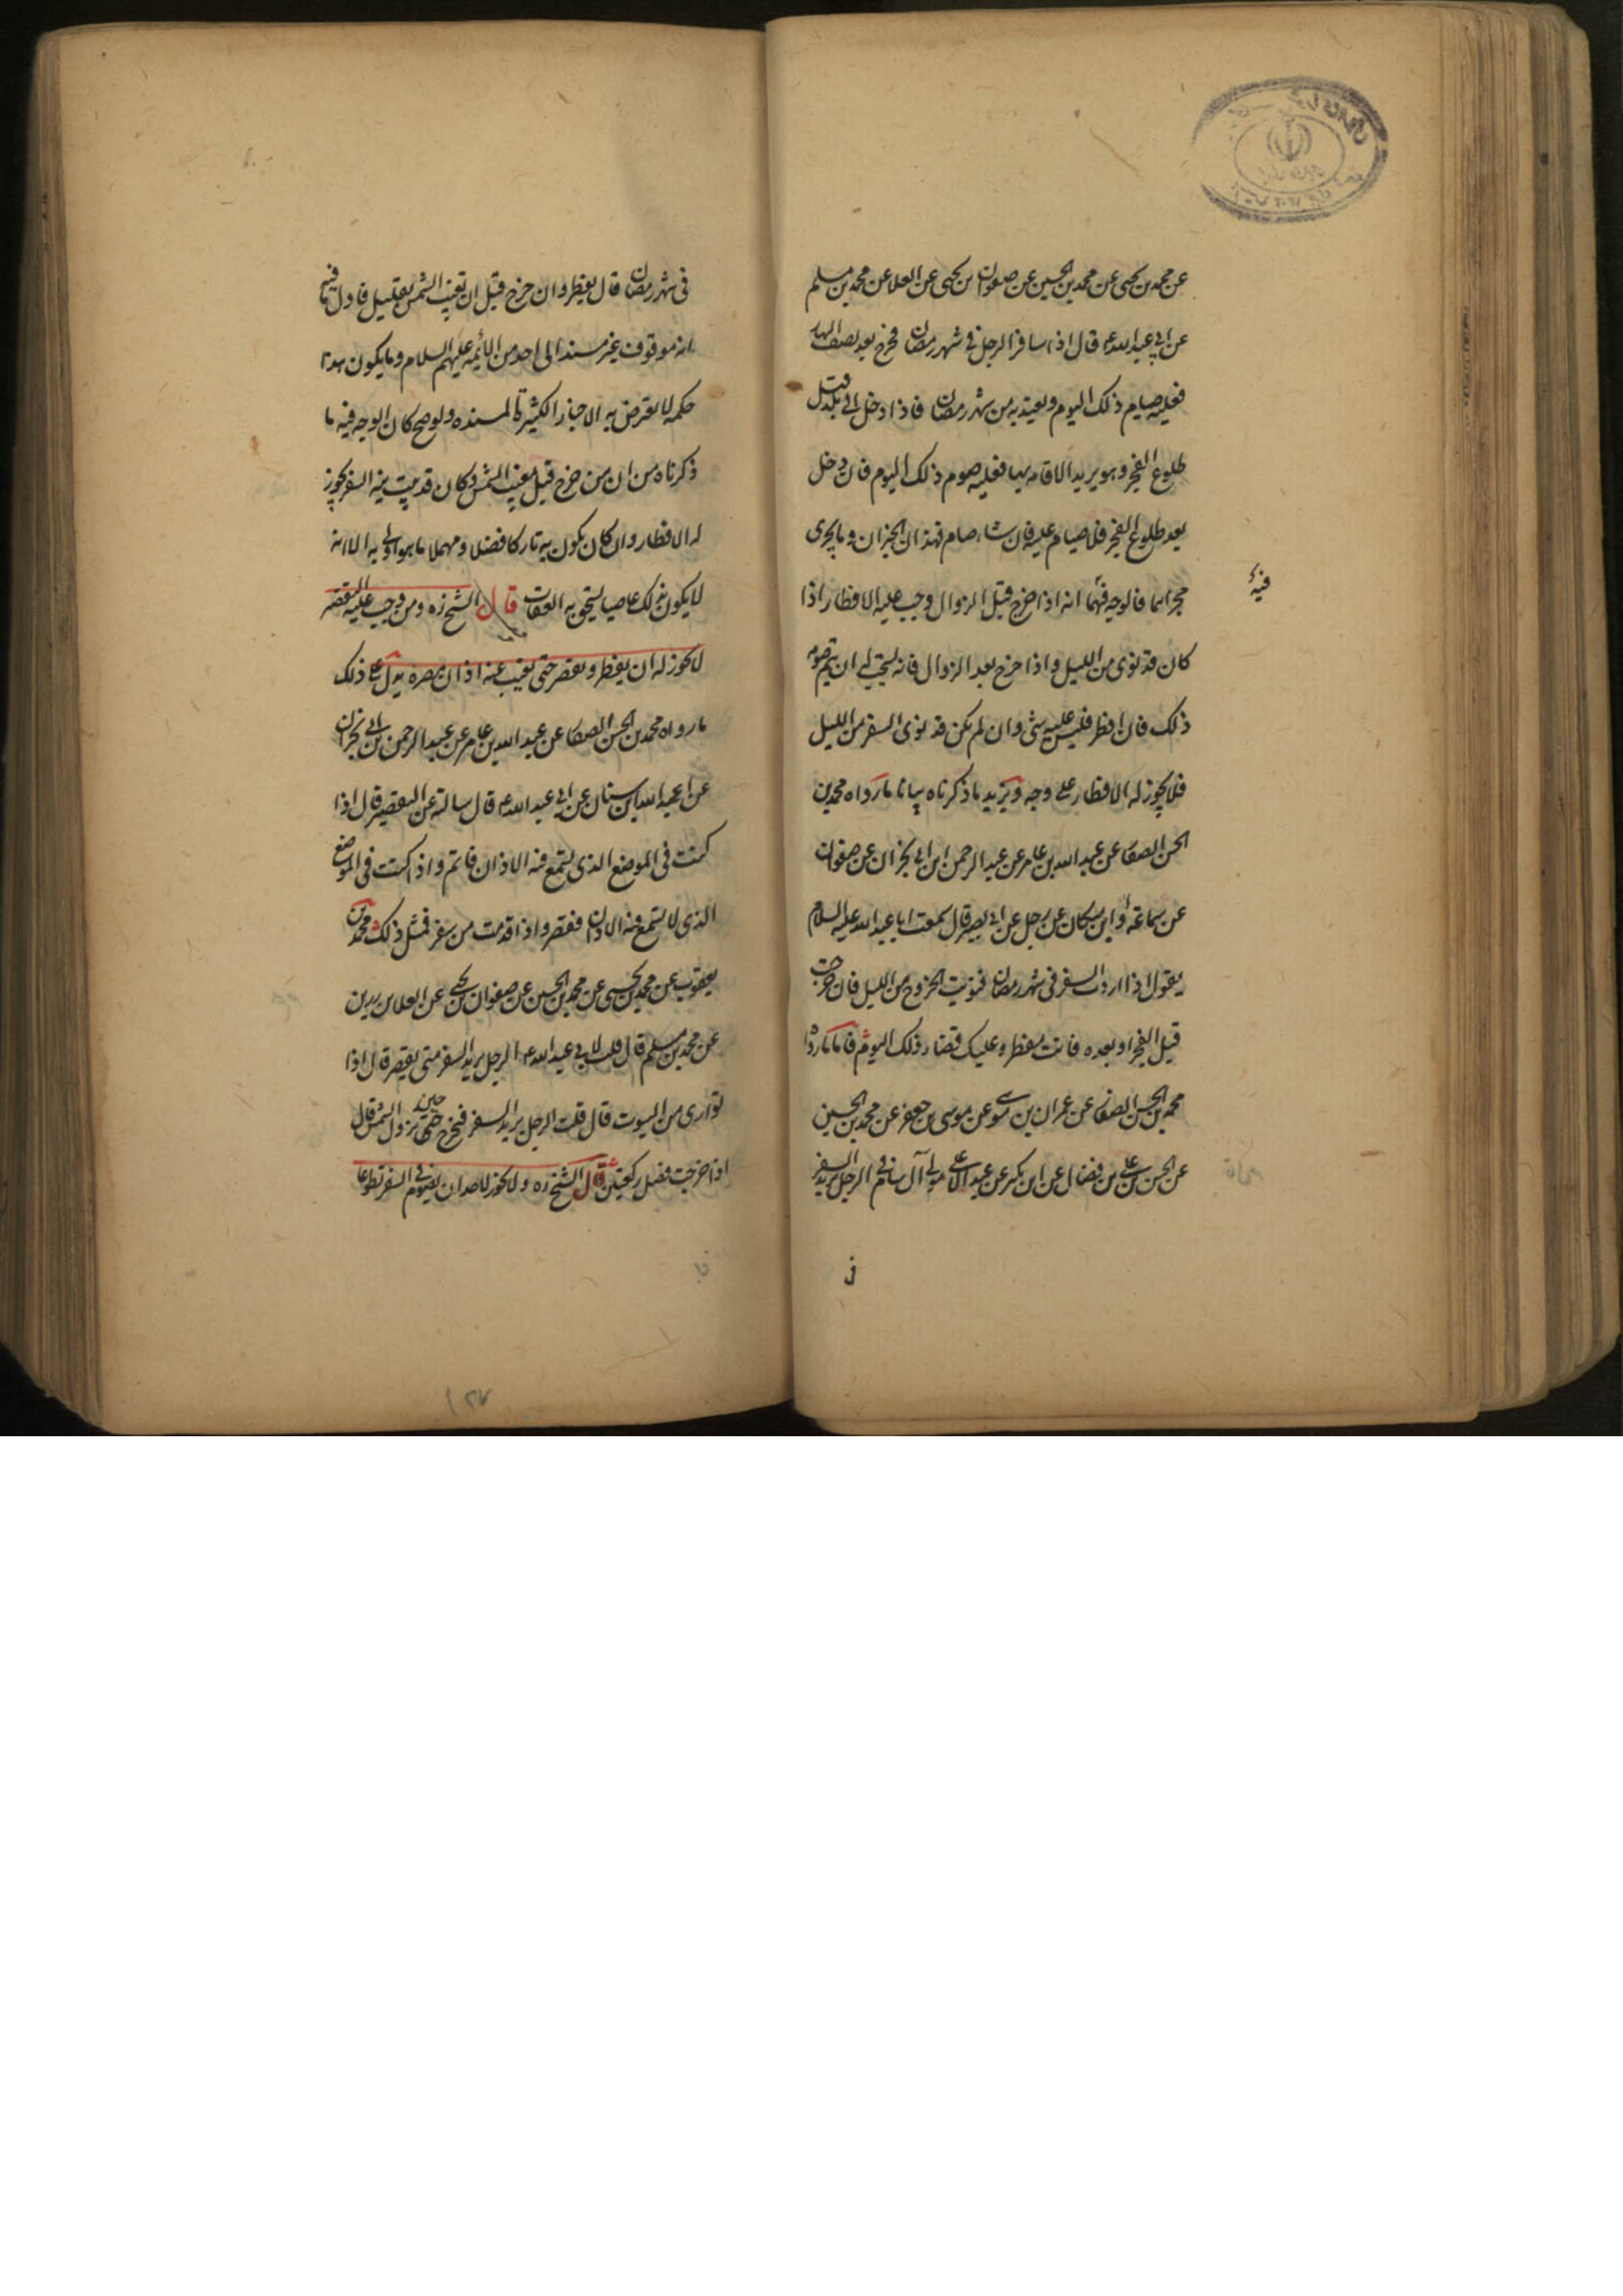 عن محمد بن يحيى عن محمد بن الحسين عن صفوان بن يحيى عن العلا عن محمد بن مسلم
عن ابي عبد الله ع قال اذا سافر الرجل في شهر رمضان فخرج بعد نصف النهار
فعليه صيام ذلك اليوم ويعتد به من شهر رمضان فاذا دخل الى بلد قبل
طلوع الفجر وهو يريد الاقامه بها فعليه صوم ذلك اليوم فان دخل
بعد طلوع الفجر فلا صيام عليه فان شاء صام فهذان الخبران وما يجرى
مجراهما فالوجه فيهما انه اذا خرج قبل الزوال وجب عليه الافطار اذا
فيه
كان قد نوى من الليل واذا خرج بعد الزوال فانه يستحب له ان يتم صومه
ذلك فان افطر فليس عليه شئ وان لم يكن قد نوى السفر من الليل
فلا يجوز له الافطار على وجه ويزيد ما ذكرناه بيانا ما رواه محمد بن
الحسن الصفار عن عبد الله بن عامر عن عبد الرحمن ابن ابي نجران عن صفوان
عن سماعة او ابن مسكان عن رجل عن ابي بصير قال سمعت ابا عبد الله عليه السلام
يقول اذا اردت السفر في شهر رمضان فنويت الخروج من الليل فان خرجت
قبل الفجر او بعده فانت مفطر وعليك قضاء ذلك اليوم فاما ما رواه
محمد بن الحسن الصفار عن عمران بن موسى عن موسى بن جعفر عن محمد بن الحسين
عن الحسن بن علي بن فضال عن ابن بكير عن عبد الاعلى مولى آل سام في الرجل يريد السفر
في شهر رمضان قال يفطر وان خرج قبل ان تغيب الشمس بقليل فاول ما فيه
انه موقوف غير مسند الى احد من الائمه عليهم السلام وما يكون هذا
حكمه لا يعترض به الاخبار الكثيرة المسنده ولو صح كان الوجه فيه ما
ذكرناه من ان من خرج قبل مغيب الشمس وكان قد بيت نية السفر يجوز
له الافطار وان كان يكون به تاركا فضلا ومهملا ما هو اولى به الا انه
لا يكون بذلك عاصيا يستحق به العقاب قال الشيخ ره ومن وجب عليه التقصير
لا يجوز له ان يفطر ويقصر حتى يغيب عنه اذان مصره يدل على ذلك
ما رواه محمد بن الحسن الصفار عن عبد الله بن عامر عن عبد الرحمن بن ابي نجران
عن عبد الله بن سنان عن ابي عبد الله ع قال سالته عن التقصير قال اذا
كنت في الموضع الذى تسمع فيه الاذان فاتم واذا كنت في الموضع
الذى لا تسمع فيه الاذان فقصر واذا قدمت من سفر فمثل ذلك محمد بن
يعقوب عن محمد بن يحيى عن محمد بن الحسين عن صفوان بن يحيى عن العلا بن رزين
عن محمد بن مسلم قال قلت لابي عبد الله ع الرجل يريد السفر متى يقصر قال اذا
توارى من البيوت قال قلت الرجل يريد السفر فيخرج حين تزول الشمس قال
اذا خرجت فصل ركعتين قال الشيخ ره ولا يجوز لاحد ان يصوم في السفر تطوعا